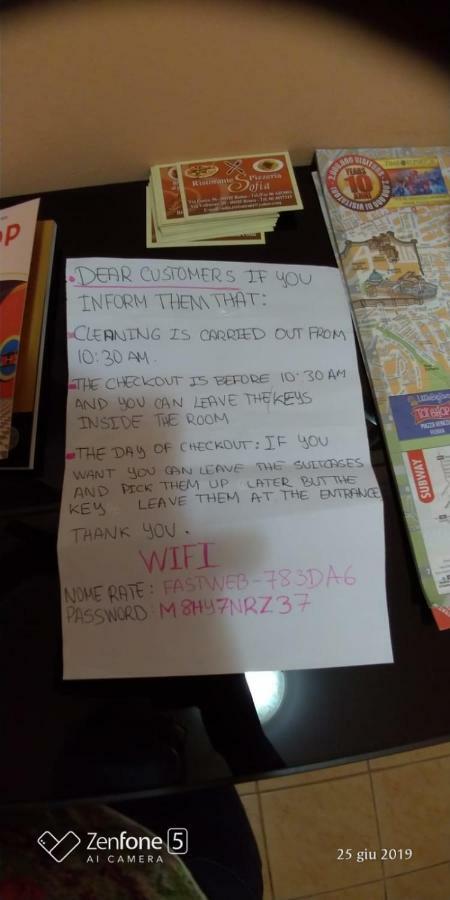 Ristorante Pizzeria
Sofia
YEARS
10
DEAR CUSTOMERS IF YOU
INFORM THEM THAT:
CLEANING IS CARRIED OUT FROM
10:30 AM.
THE CHECKOUT IS BEFORE 10:30 AM
AND YOU CAN LEAVE THE KEYS
INSIDE THE ROOM
THE DAY OF CHECKOUT: IF YOU
WANT YOU CAN LEAVE THE SUITCASES
AND PICK THEM UP LATER BUT THE
KEY LEAVE THEM AT THE ENTRANCE
THANK YOU.
WIFI
NOME RATE: FASTWEB-783DA6
PASSWORD: M8HY7NRZ37
SUBWAY
Zenfone 5
AI CAMERA
25 giu 2019